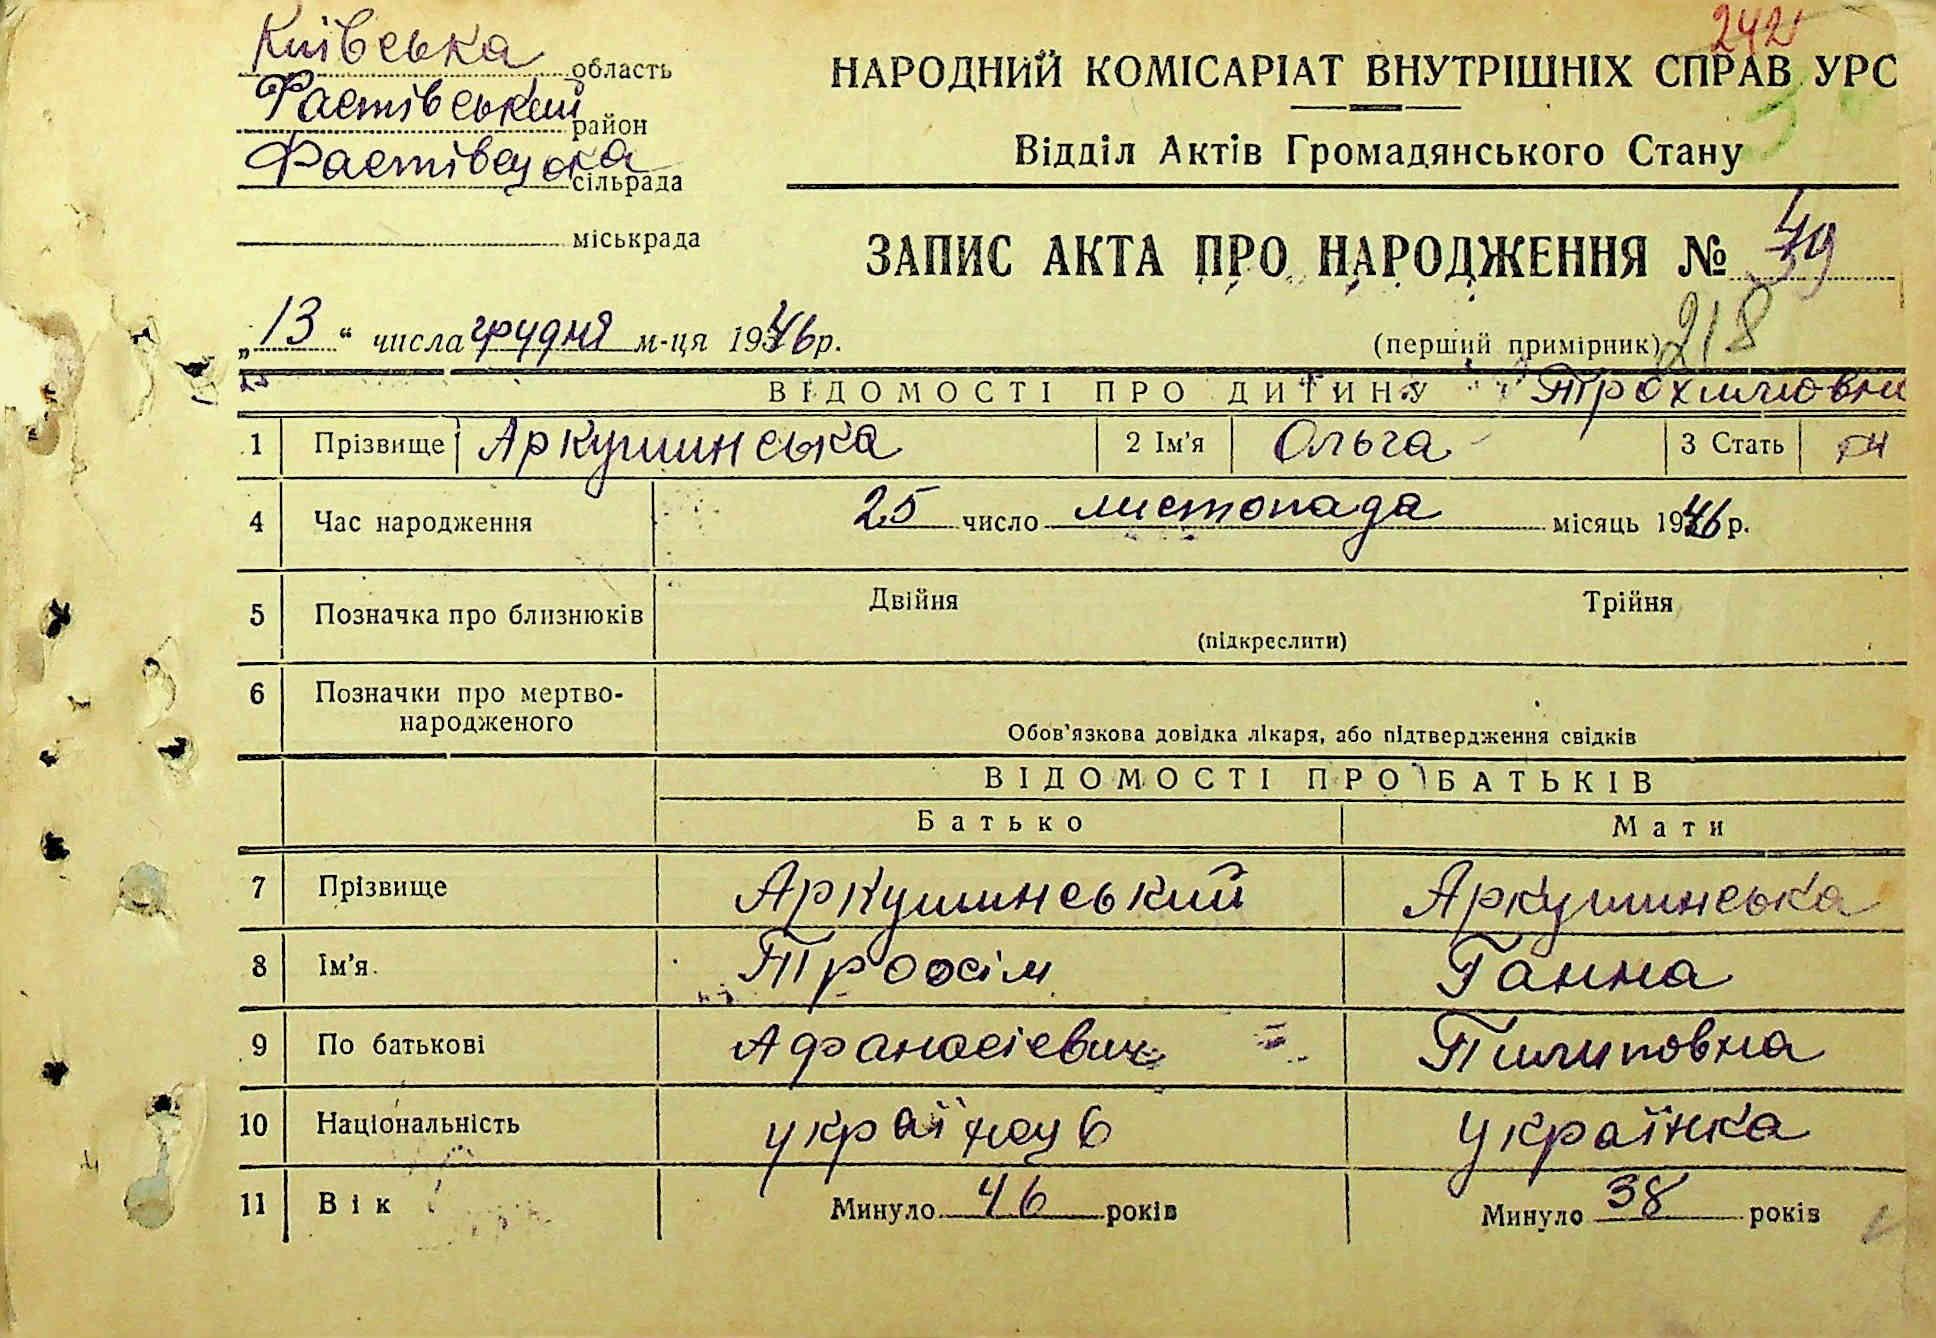 242
Київська область
Фастівський район
Фастівецька сільрада
міськрада
НАРОДНИЙ КОМІСАРІАТ ВНУТРІШНІХ СПРАВ УРС
Відділ Актів Громадянського Стану
ЗАПИС АКТА ПРО НАРОДЖЕННЯ № 39
„13“ числа грудня м-ця 1946 р.
(перший примірник) 218
ВІДОМОСТІ ПРО ДИТИНУ Трохимовна
1 Прізвище Аркушинська 2 Ім'я Ольга 3 Стать
4 Час народження 25 число листопада місяць 1946 р.
5 Позначка про близнюків Двійня Трійня
(підкреслити)
6 Позначки про мертво-
народженого
Обов'язкова довідка лікаря, або підтвердження свідків
ВІДОМОСТІ ПРО БАТЬКІВ
Батько Мати
7 Прізвище Аркушинський Аркушинська
8 Ім'я Трохім Ганна
9 По батькові Афанасієвич Пилиповна
10 Національність українець українка
11 Вік Минуло 46 років Минуло 38 років